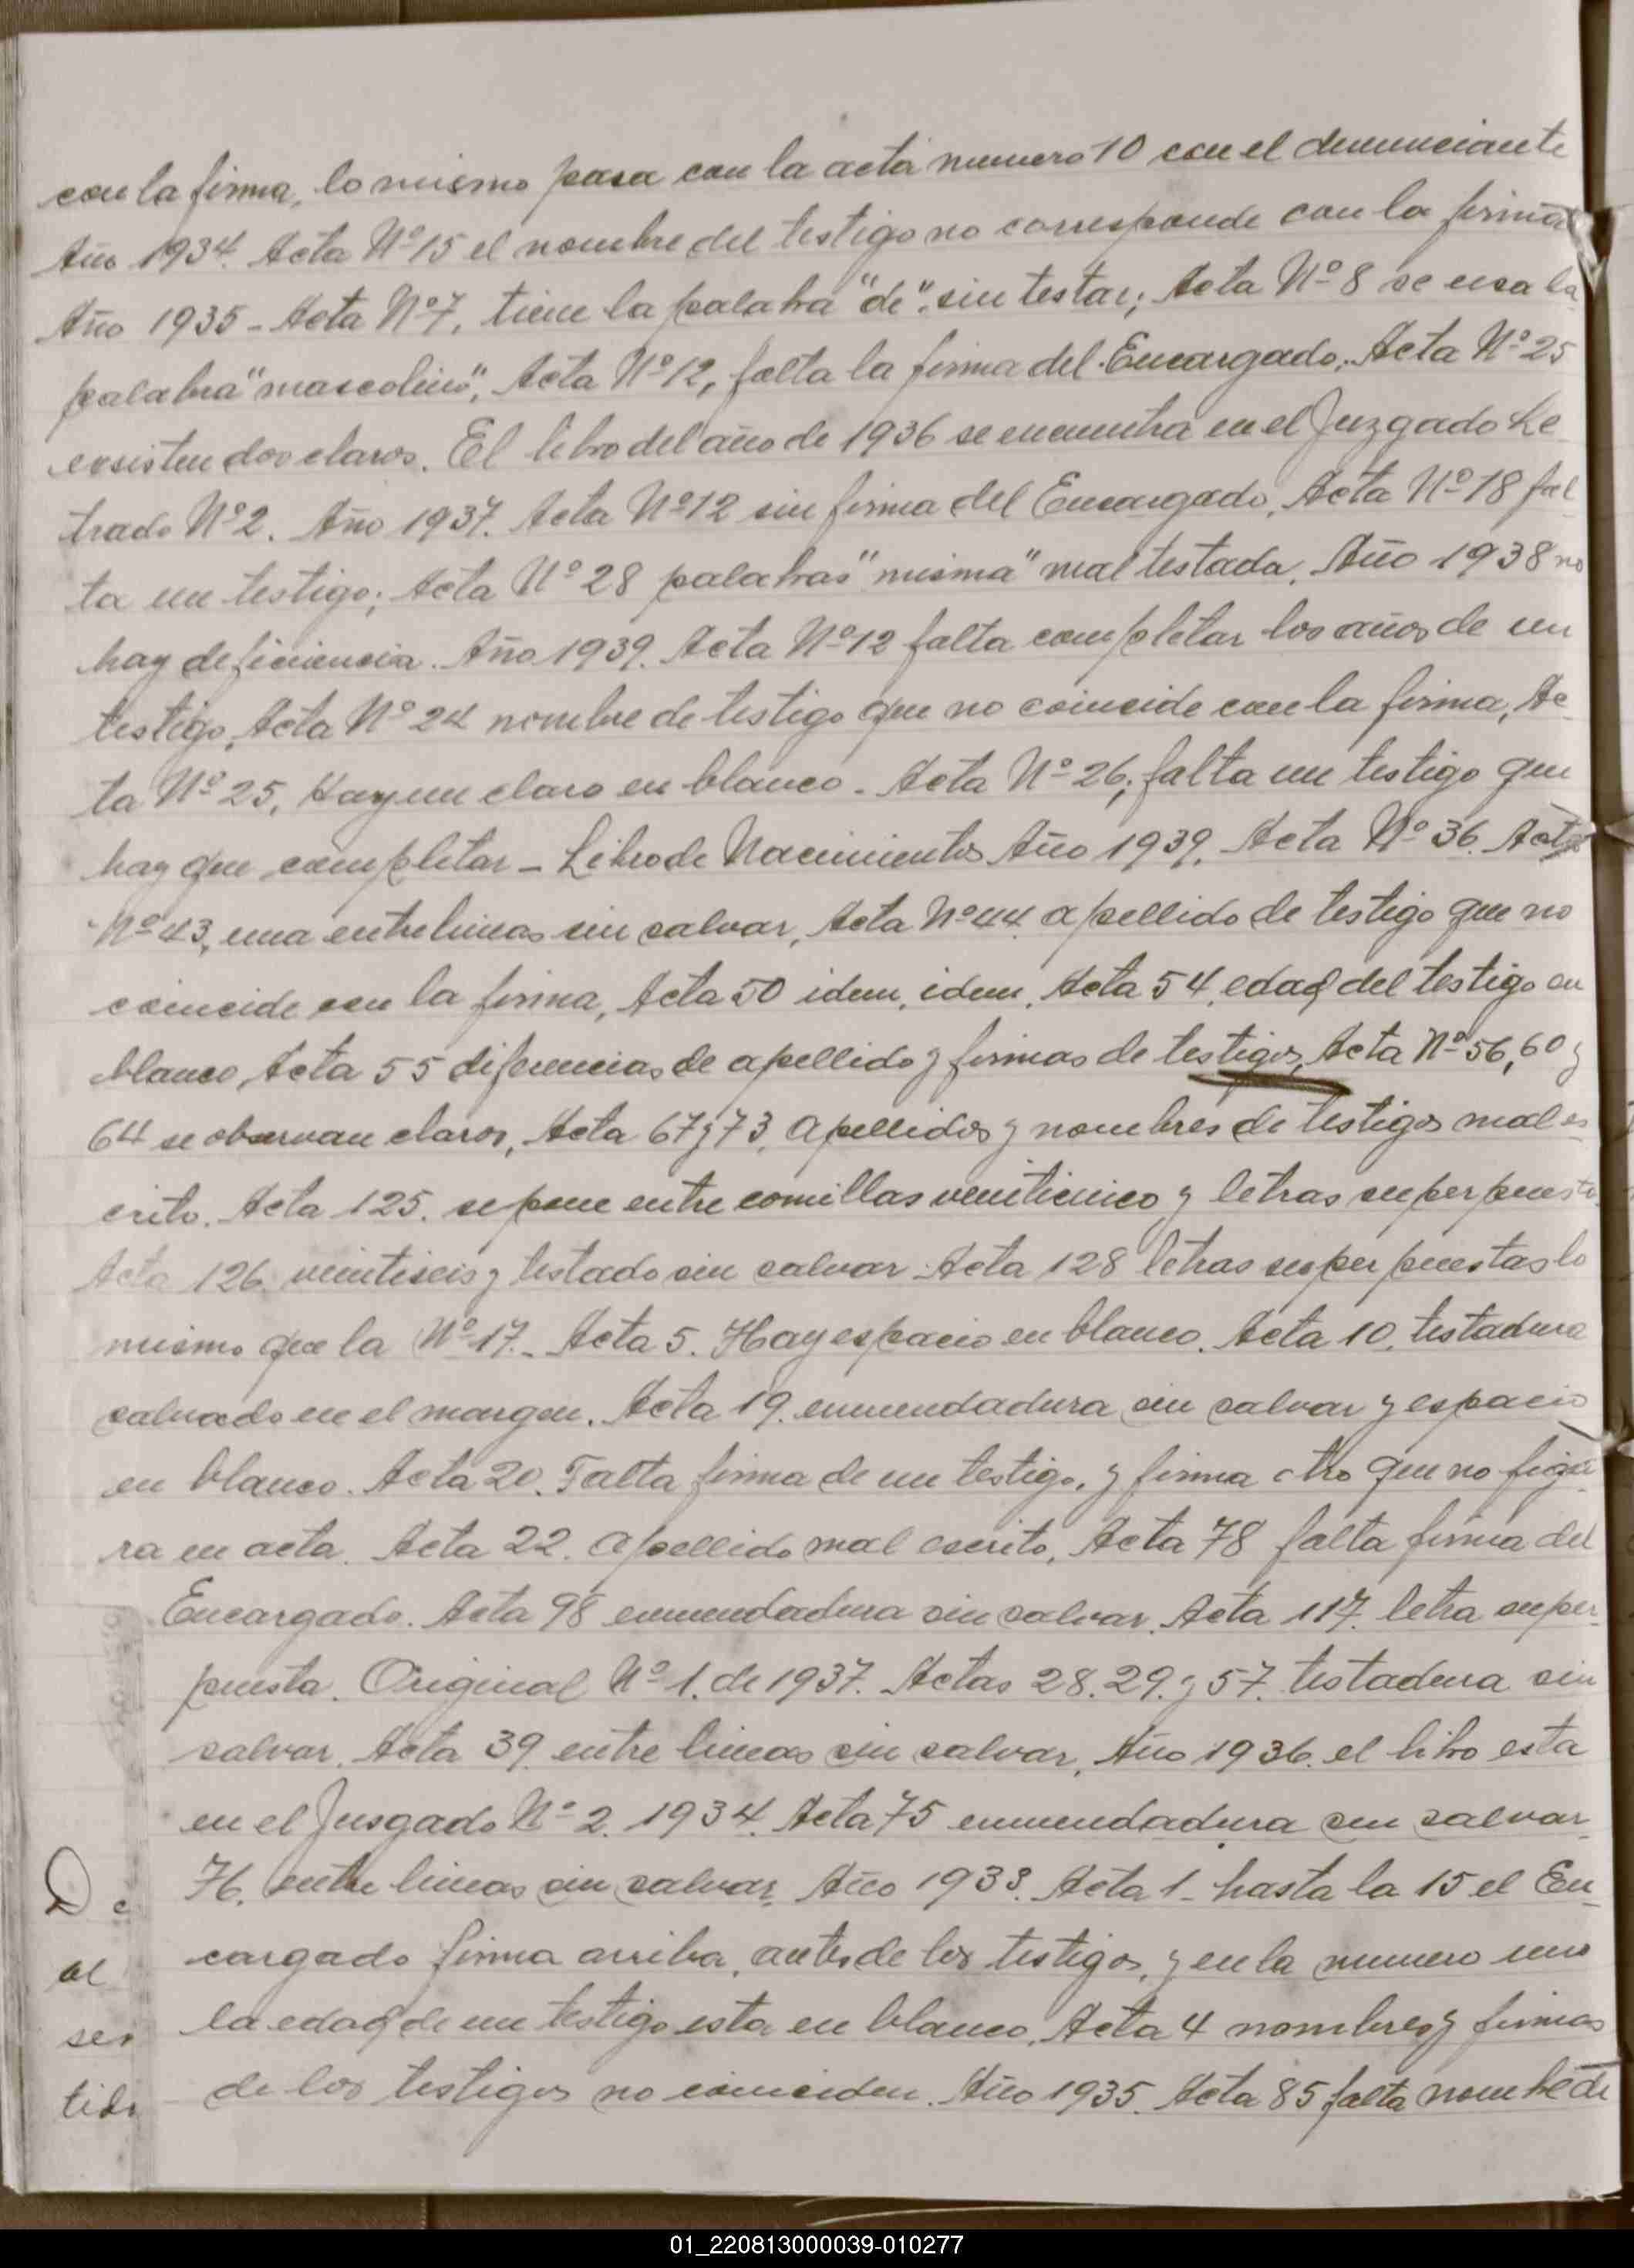 con la firma, lo mismo pasa con la acta numero 10 con el denunciante
Año 1934. Acta Nº 15 el nombre del testigo no corresponde con la firma
Año 1935 - Acta Nº 7, tiene la palabra "de", sin testar; Acta Nº 8 se usa la
palabra "mascolino", Acta Nº 12, falta la firma del Encargado. Acta Nº 25
exsisten dos claros. El libro del año de 1936 se encuentra en el Juzgado Le
trado Nº 2. Año 1937. Acta Nº 12 sin firma del Encargado, Acta Nº 18 fal
ta un testigo; Acta Nº 28 palabras "misma" mal testada, Año 1938 no
hay deficiencia. Año 1939. Acta Nº 12 falta completar los años de un
testigo, Acta Nº 24 nombre de testigo que no coincide con la firma, Ac
ta Nº 25, Hay un claro en blanco - Acta Nº 26, falta un testigo que
hay que completar - Libro de Nacimientos Año 1939. Acta Nº 36. Acta
Nº 43, una entrelineas sin salvar, Acta Nº 44 apellido de testigo que no
coincide con la firma, Acta 50 idem, idem, Acta 54, edad del testigo en
blanco, Acta 55 diferencias de apellido y firmas de testigos, Acta Nº 56, 60 y
64 se observan claros, Acta 67 y 73, apellidos y nombres de testigos mal es
crito. Acta 125. se pone entre comillas veinticinco y letras superpuesta
Acta 126 veintiseis y testado sin salvar. Acta 128 letras superpuestas lo
mismo que la Nº 17. - Acta 5. Hay espacio en blanco. Acta 10, testadura
salvado en el margen. Acta 19. enmendadura sin salvar y espacio
en blanco. Acta 20. Falta firma de un testigo, y firma otro que no figu
ra en acta. Acta 22. apellido mal escrito, Acta 78 falta firma del
Encargado. Acta 98 enmendadura sin salvar, Acta 117. letra super-
puesta. Original Nº 1. de 1937. Actas 28. 29. y 57. testadura sin
salvar. Acta 39. entre lineas sin salvar, Año 1936. el libro esta
en el Jusgado Nº 2. 1934. Acta 75 enmendadura sin salvar
76. entre lineas sin salvar, Año 1933. Acta 1 - hasta la 15 el En-
De
cargado firma arriba, antes de los testigos, y en la numero uno
al
la edad de un testigo esta en blanco, Acta 4 nombres y firmas
ser
de los testigos no coinciden. Año 1935. Acta 85 falta nombre de
tido
01_220813000039-010277